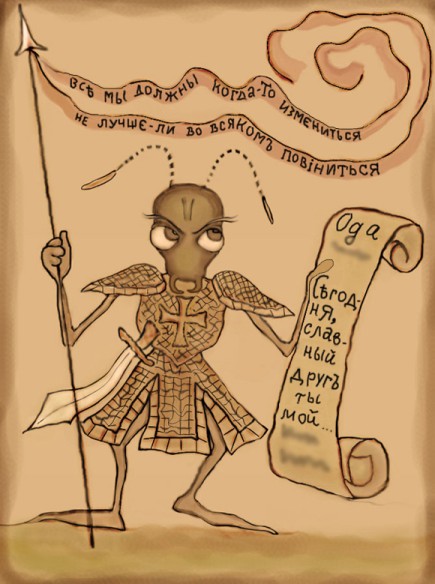 всѣ мы должны когда-то измениться
не лучшє-ли во всякомъ повiниться
Ода
Сѣгод-
ня,
слав-
ный
другъ
ты
мой...